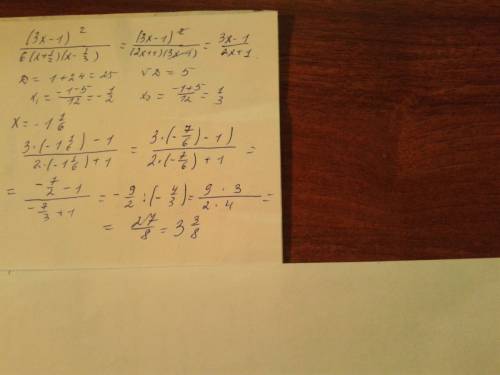 (3x-1)² / 6(x+1/2)(x-1/3) = (3x-1)² / (2x+1)(3x-1) = 3x-1 / 2x+1
D = 1+24=25 √D = 5
x₁ = -1-5/12 = -1/2 x₂ = -1+5/12 = 1/3
x = -1 1/6
3·(-1 1/6)-1 / 2·(-1 1/6)+1 = 3·(-7/6)-1) / 2·(-7/6)+1 =
= -7/2 -1 / -7/3 +1 = -9/2 : (-4/3) = 9·3 / 2·4 =
= 27/8 = 3 3/8